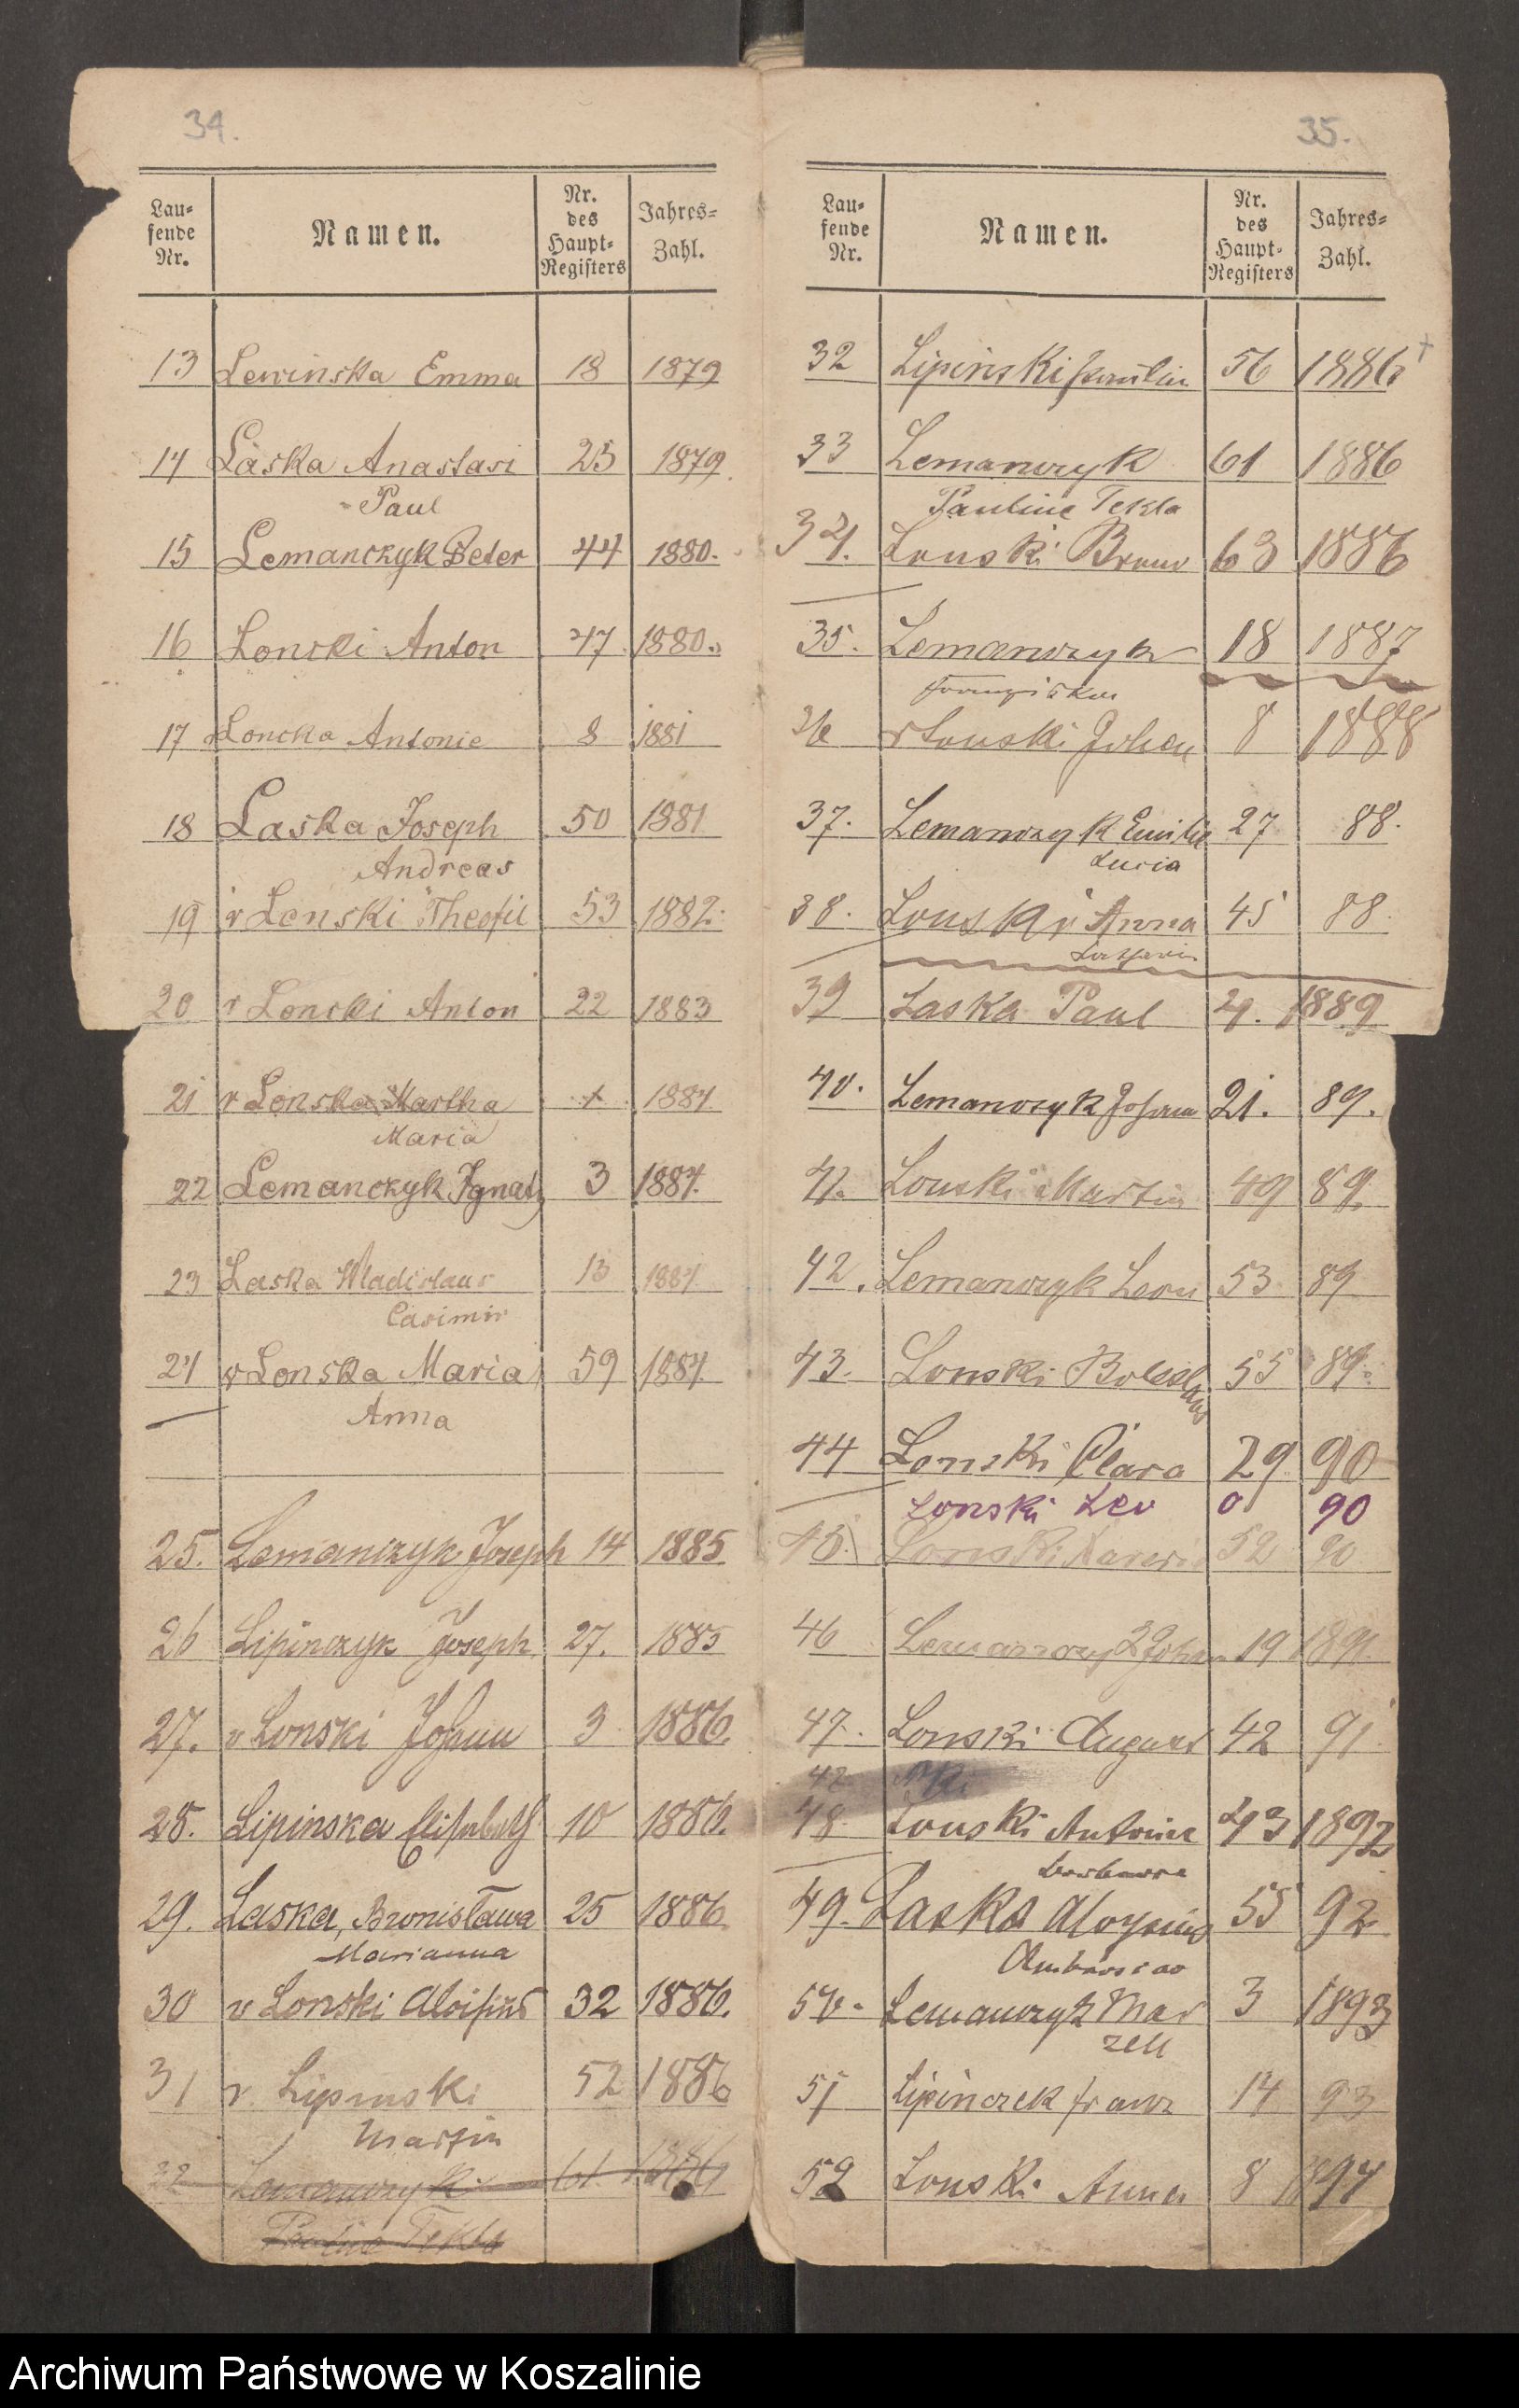 34.
Lau-
fende
Nr.
Namen.
Nr.
des
Haupt-
Registers
Jahres-
Zahl.
13 Lewinska Emma 18 1879
14 Laska Anastasi 25 1879
Paul
15 Lemanczyk Peter 44 1880.
16 Lonski Anton 47 1880.
17 Lonska Antonie 8 1881
18 Laska Joseph 50 1881
Andreas
19 v Lonski Theofil 53 1882.
20 v Lonski Anton 22 1883
21 v Lonska Martha 1884
Maria
22 Lemanczyk Ignatz 3 1884.
23 Laska Wladislaus 13 1884
Casimir
24 v Lonska Maria 59 1884.
Anna
25. Lemanczyk Joseph 14 1885
26 Lipinczyk Joseph 27. 1885
27. v Lonski Johann 3 1886.
28. Lipinska Elisabeth 10 1886.
29. Laska, Bronisława 25 1886.
Marianna
30 v Lonski Aloisius 32 1886.
31 v. Lipinski 52 1886
Martin
32 Lemanczyk 61. 1886
Pauline Tekla
35.
Lau-
fende
Nr.
Namen.
Nr.
des
Haupt-
Registers
Jahres-
Zahl.
32 Lipinski Paulin 56 1886 +
33 Lemanczyk 61 1886
Pauline Tekla
34. Lonski Bruno 63 1886
35. Lemanczyk 18 1887
36 v Lonski Johan 8 1888
37. Lemanczyk Emilie 27 88.
Lucia
38. Lonski Anna 45 88.
39 Laska Paul 4. 1889
40. Lemanczyk Johann 21. 89.
41. Lonski Martin 49 89.
42. Lemanczyk Leon 53 89
43. Lonski Boleslaus 55 89.
44 Lonski Clara 29 90
Lonski Leo 90
45. Lonski 52 90
46 Lemanczyk Johan 19 1891.
47. Lonski August 42 91
48. Lonski Antonie 43 1892
Barbara
49. Laska Aloysius 55 92
50. Lemanczyk Mar 3 1893
zell
51 Lipinczek Franz 14 93
52 Lonski Anna 8 1894
Archiwum Państwowe w Koszalinie